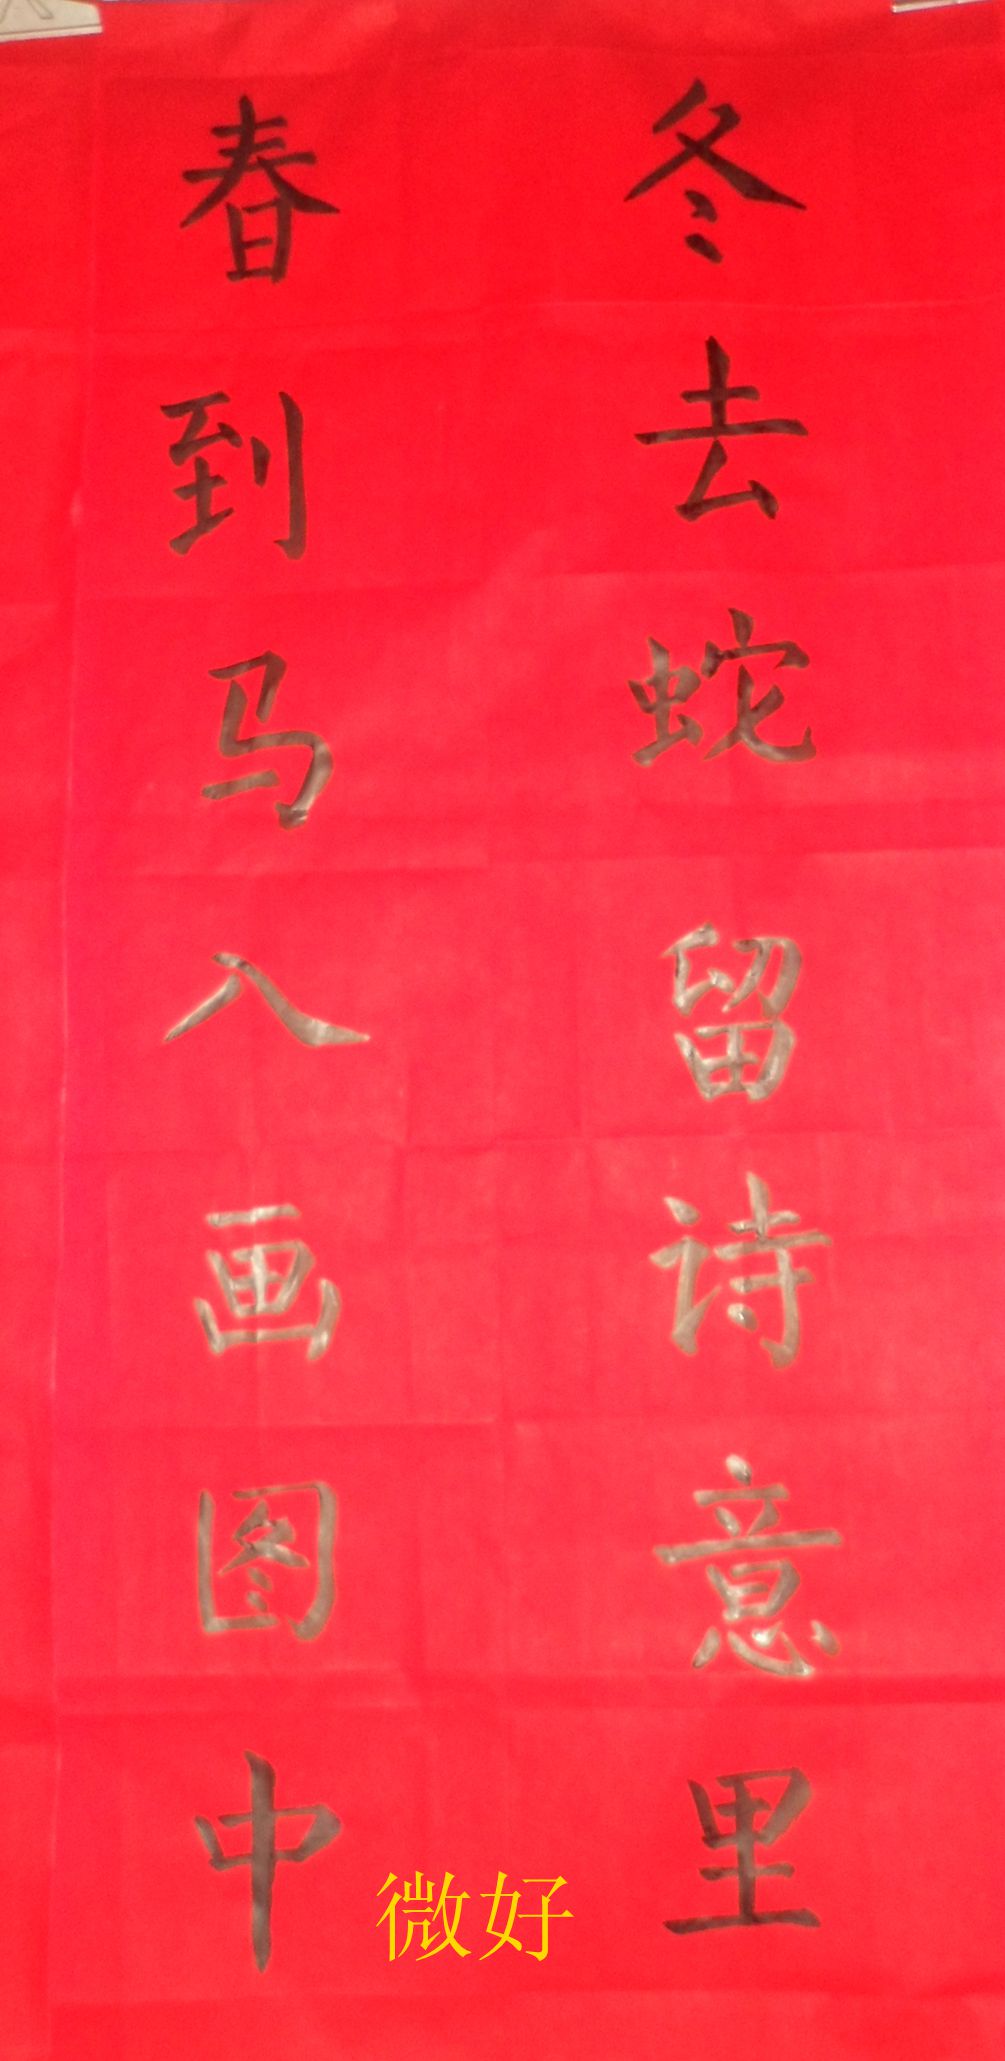 冬去蛇留诗意里
春到马入画图中
微好